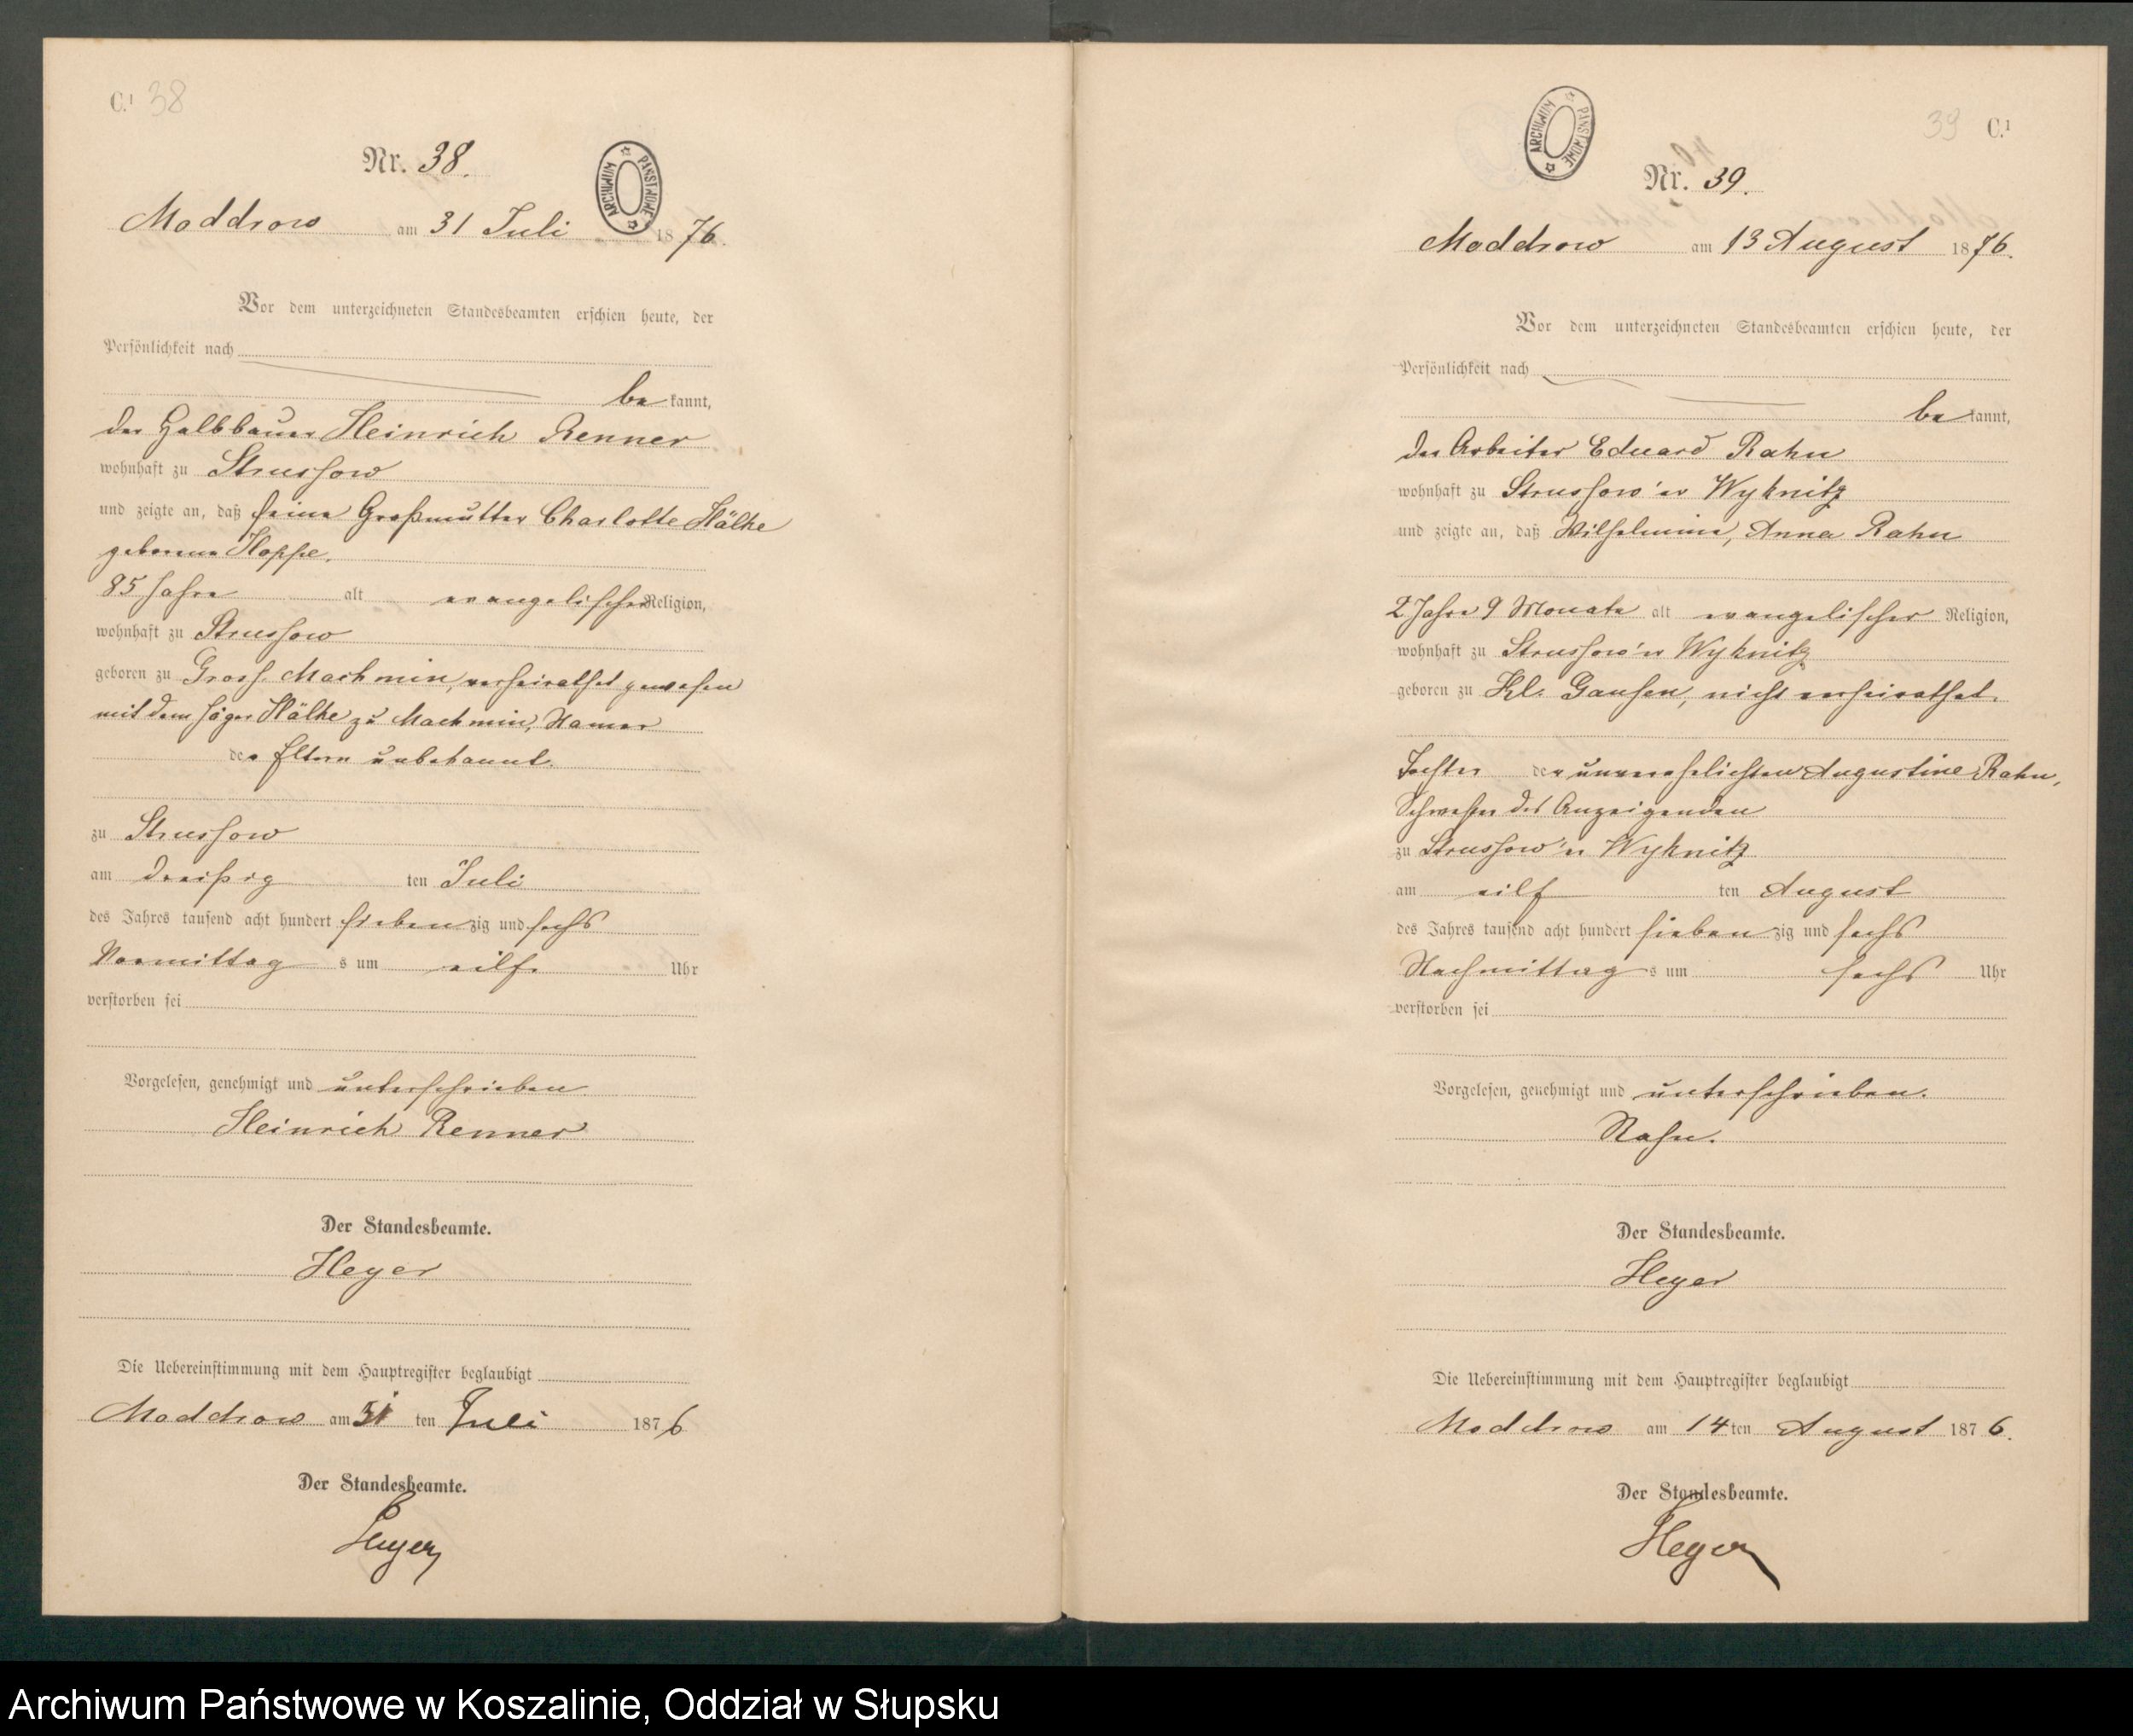 C.¹ 38
Nr. 38.
ARCHIWUM PAŃSTWOWE
Moddrow am 31 Juli 1876.
Vor dem unterzeichneten Standesbeamten erschien heute, der
Persönlichkeit nach
bekannt,
der Halbbauer Heinrich Renner
wohnhaft zu Strussow
und zeigte an, daß seine Großmutter Charlotte Hälke
geborene Hoppe,
85 Jahre alt evangelischer Religion,
wohnhaft zu Strussow
geboren zu Gross Machmin, verheirathet gewesen
mit dem Jäger Hälke zu Machmin, Namen
der Eltern unbekannt.
zu Strussow
am dreißig ten Juli
des Jahres tausend acht hundert siebenzig und sechs
Vormittags um eilf Uhr
verstorben sei
Vorgelesen, genehmigt und unterschrieben
Heinrich Renner
Der Standesbeamte.
Heyer
Die Uebereinstimmung mit dem Hauptregister beglaubigt
Moddrow am 31 ten Juli 1876
Der Standesbeamte.
Heyer
39 C.¹
ARCHIWUM PAŃSTWOWE
Nr. 39.
Moddrow am 13 August 1876.
Vor dem unterzeichneten Standesbeamten erschien heute, der
Persönlichkeit nach
bekannt,
der Arbeiter Eduard Rahn
wohnhaft zu Strussow'er Wyknitz
und zeigte an, daß Wilhelmine, Anna Rahn
2 Jahre 9 Monate alt evangelischer Religion,
wohnhaft zu Strussow'er Wyknitz
geboren zu Kl. Gansen, nicht verheirathet.
Tochter der unverehelichten Augustine Rahn,
Schwester des Anzeigenden
zu Strussow'er Wyknitz
am eilf ten August
des Jahres tausend acht hundert siebenzig und sechs
Nachmittags um sechs Uhr
verstorben sei
Vorgelesen, genehmigt und unterschrieben.
Rahn.
Der Standesbeamte.
Heyer
Die Uebereinstimmung mit dem Hauptregister beglaubigt
Moddrow am 14ten August 1876.
Der Standesbeamte.
Heyer
Archiwum Państwowe w Koszalinie, Oddział w Słupsku